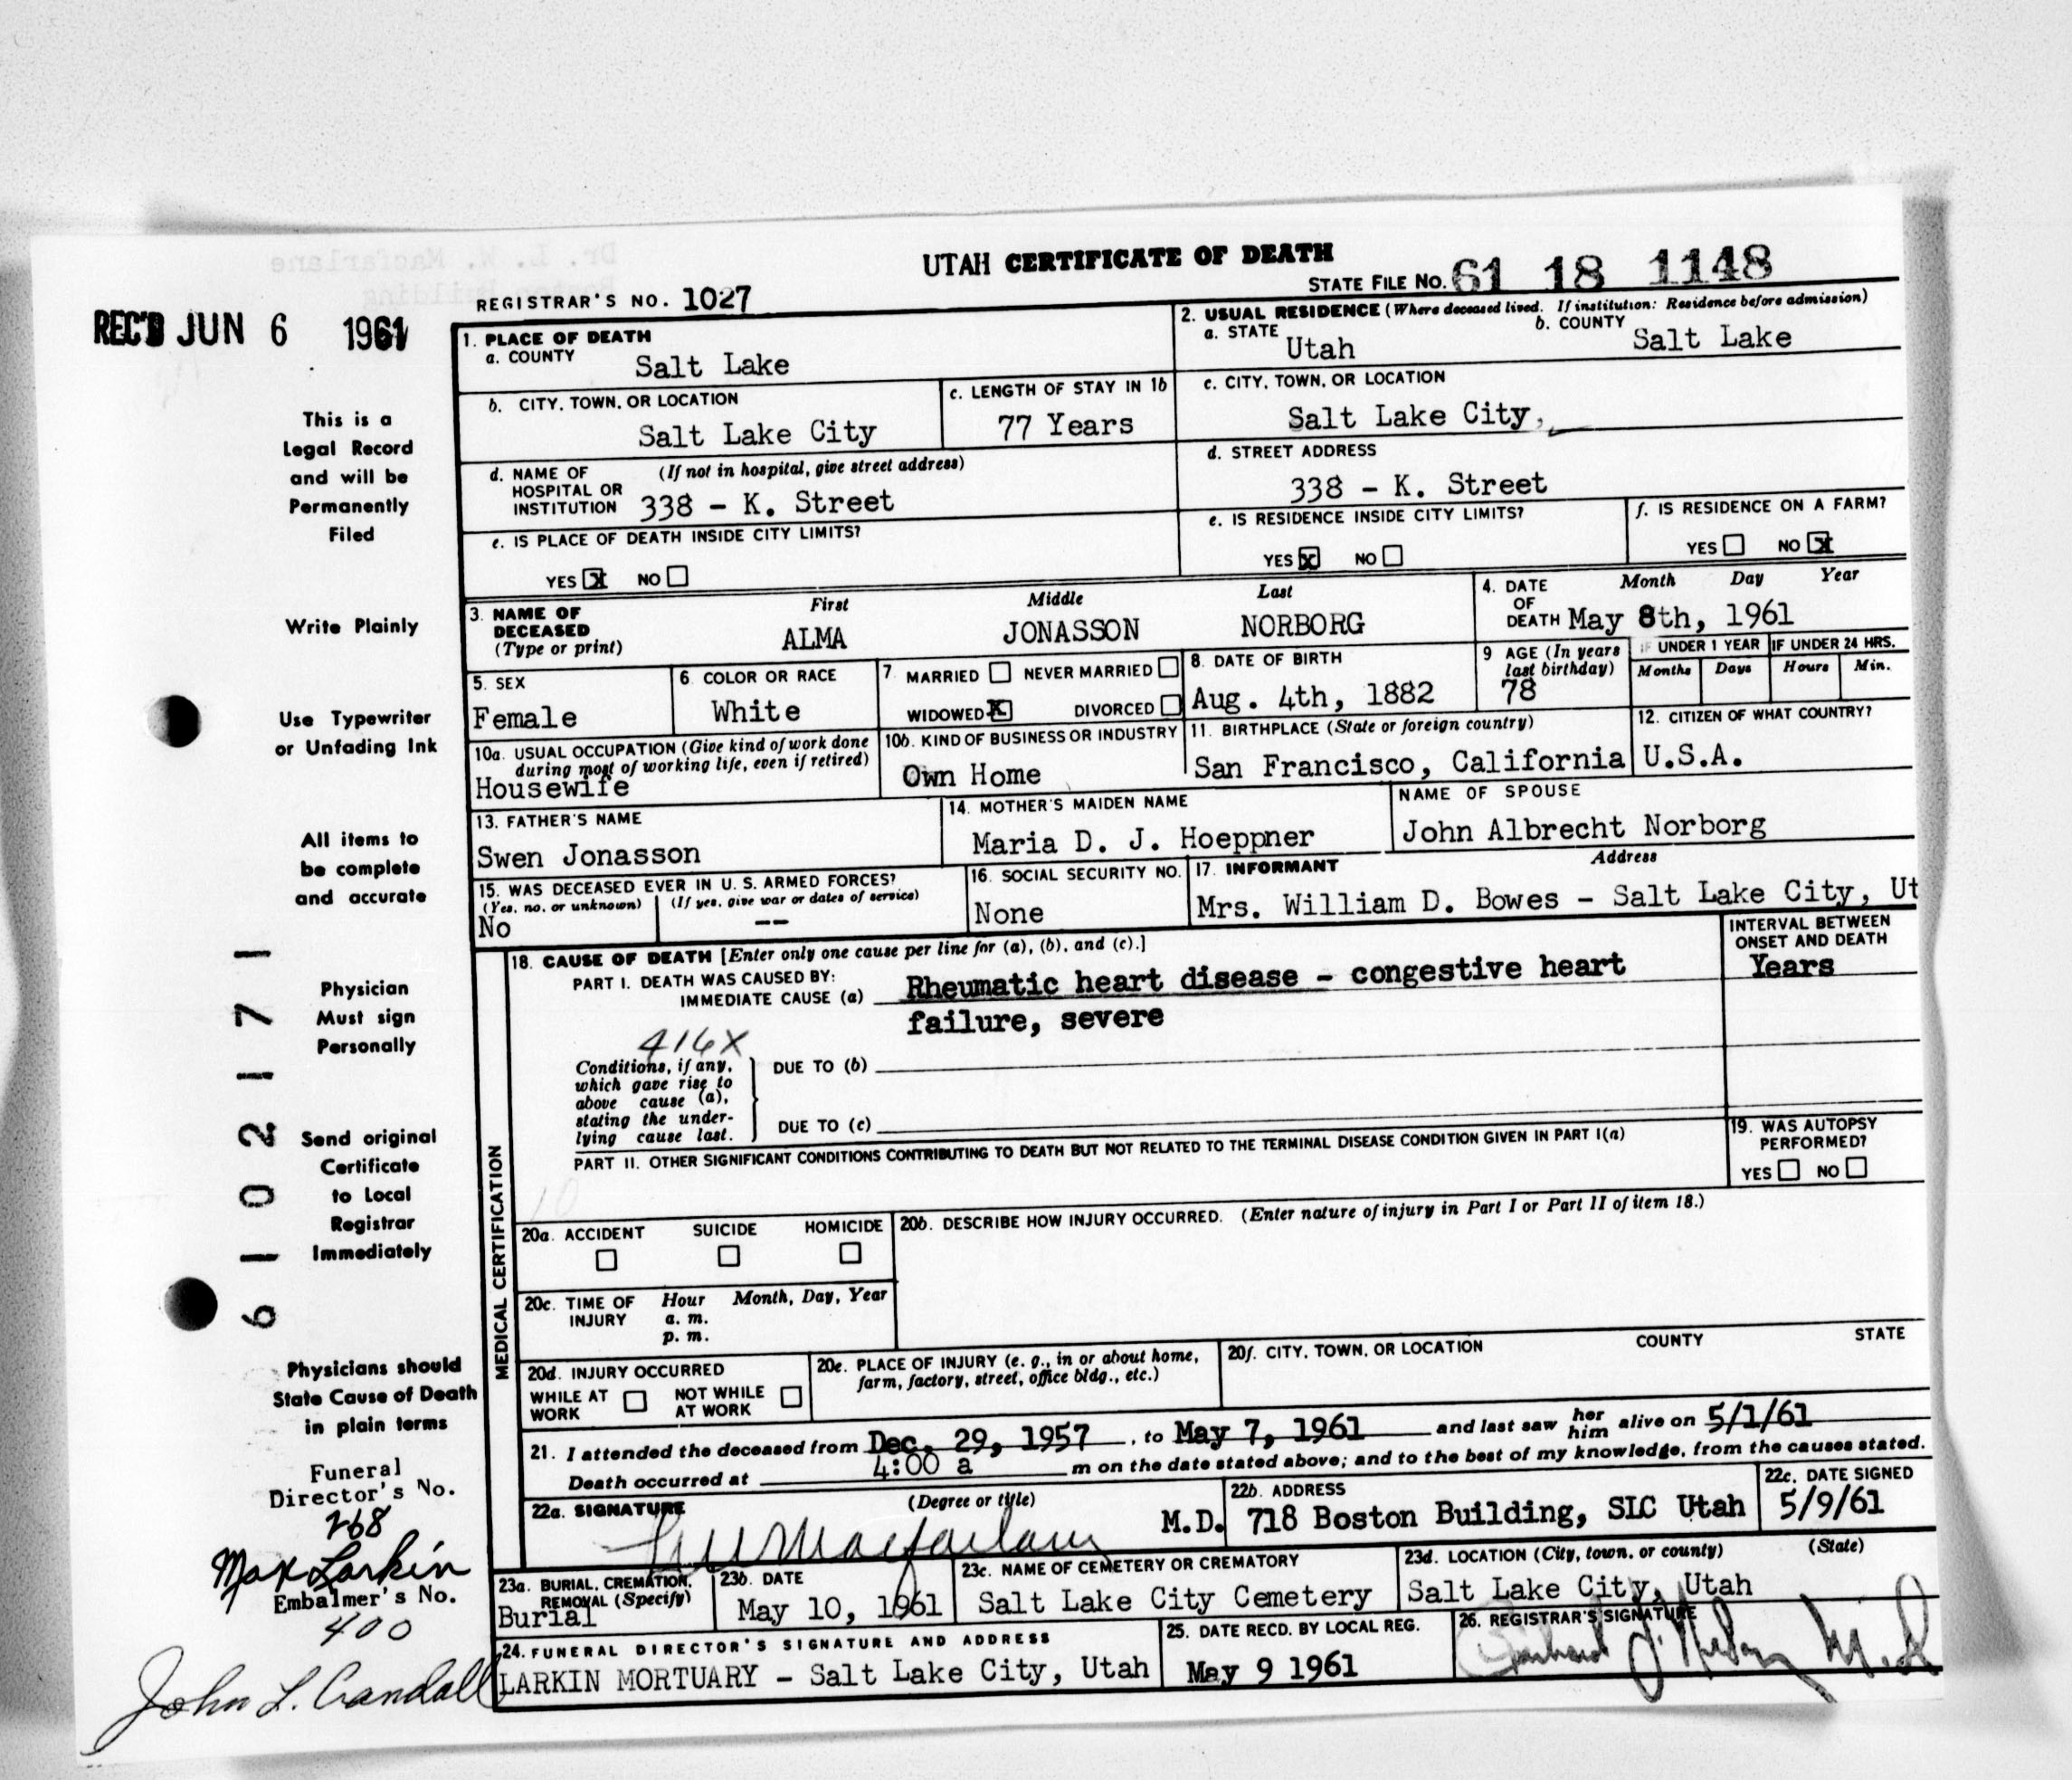 UTAH CERTIFICATE OF DEATH
STATE FILE NO. 61 18 1148
REGISTRAR'S NO. 1027
REC'D JUN 6 1961
1. PLACE OF DEATH
a. COUNTY Salt Lake
2. USUAL RESIDENCE (Where deceased lived. If institution: Residence before admission)
a. STATE Utah b. COUNTY Salt Lake
b. CITY, TOWN, OR LOCATION Salt Lake City
c. LENGTH OF STAY IN 1b 77 Years
c. CITY, TOWN, OR LOCATION Salt Lake City,
d. NAME OF HOSPITAL OR INSTITUTION (If not in hospital, give street address) 338 - K. Street
d. STREET ADDRESS 338 - K. Street
e. IS PLACE OF DEATH INSIDE CITY LIMITS?
YES X NO
e. IS RESIDENCE INSIDE CITY LIMITS?
YES X NO
f. IS RESIDENCE ON A FARM?
YES NO X
3. NAME OF DECEASED (Type or print)
First Middle Last
ALMA JONASSON NORBORG
4. DATE OF DEATH Month Day Year
May 8th, 1961
5. SEX Female
6. COLOR OR RACE White
7. MARRIED NEVER MARRIED
WIDOWED X DIVORCED
8. DATE OF BIRTH Aug. 4th, 1882
9 AGE (In years last birthday) 78
IF UNDER 1 YEAR Months Days
IF UNDER 24 HRS. Hours Min.
10a. USUAL OCCUPATION (Give kind of work done during most of working life, even if retired)
Housewife
10b. KIND OF BUSINESS OR INDUSTRY
Own Home
11. BIRTHPLACE (State or foreign country)
San Francisco, California
12. CITIZEN OF WHAT COUNTRY?
U.S.A.
13. FATHER'S NAME
Swen Jonasson
14. MOTHER'S MAIDEN NAME
Maria D. J. Hoeppner
NAME OF SPOUSE
John Albrecht Norborg
15. WAS DECEASED EVER IN U. S. ARMED FORCES?
(Yes, no, or unknown) (If yes, give war or dates of service)
No --
16. SOCIAL SECURITY NO.
None
17. INFORMANT Address
Mrs. William D. Bowes - Salt Lake City, Ut
18. CAUSE OF DEATH [Enter only one cause per line for (a), (b), and (c).]
INTERVAL BETWEEN ONSET AND DEATH
PART I. DEATH WAS CAUSED BY:
IMMEDIATE CAUSE (a) Rheumatic heart disease - congestive heart
failure, severe
Years
416X
Conditions, if any, which gave rise to above cause (a), stating the underlying cause last.
DUE TO (b)
DUE TO (c)
PART II. OTHER SIGNIFICANT CONDITIONS CONTRIBUTING TO DEATH BUT NOT RELATED TO THE TERMINAL DISEASE CONDITION GIVEN IN PART I(a)
19. WAS AUTOPSY PERFORMED?
YES NO
MEDICAL CERTIFICATION
20a. ACCIDENT SUICIDE HOMICIDE
20b. DESCRIBE HOW INJURY OCCURRED. (Enter nature of injury in Part I or Part II of item 18.)
20c. TIME OF INJURY Hour Month, Day, Year
a. m.
p. m.
20d. INJURY OCCURRED
WHILE AT WORK NOT WHILE AT WORK
20e. PLACE OF INJURY (e. g., in or about home, farm, factory, street, office bldg., etc.)
20f. CITY, TOWN, OR LOCATION COUNTY STATE
21. I attended the deceased from Dec. 29, 1957, to May 7, 1961 and last saw her him alive on 5/1/61
Death occurred at 4:00 a m on the date stated above; and to the best of my knowledge, from the causes stated.
22a. SIGNATURE (Degree or title)
Macfarlane M.D.
22b. ADDRESS
718 Boston Building, SLC Utah
22c. DATE SIGNED
5/9/61
23a. BURIAL, CREMATION, REMOVAL (Specify)
Burial
23b. DATE
May 10, 1961
23c. NAME OF CEMETERY OR CREMATORY
Salt Lake City Cemetery
23d. LOCATION (City, town, or county) (State)
Salt Lake City, Utah
24. FUNERAL DIRECTOR'S SIGNATURE AND ADDRESS
LARKIN MORTUARY - Salt Lake City, Utah
25. DATE RECD. BY LOCAL REG.
May 9 1961
26. REGISTRAR'S SIGNATURE
This is a
Legal Record
and will be
Permanently
Filed
Write Plainly
Use Typewriter
or Unfading Ink
All items to
be complete
and accurate
Physician
Must sign
Personally
Send original
Certificate
to Local
Registrar
Immediately
Physicians should
State Cause of Death
in plain terms
6 1 0 2 1 7 1
Funeral
Director's No.
268
Max Larkin
Embalmer's No.
400
John L. Crandall